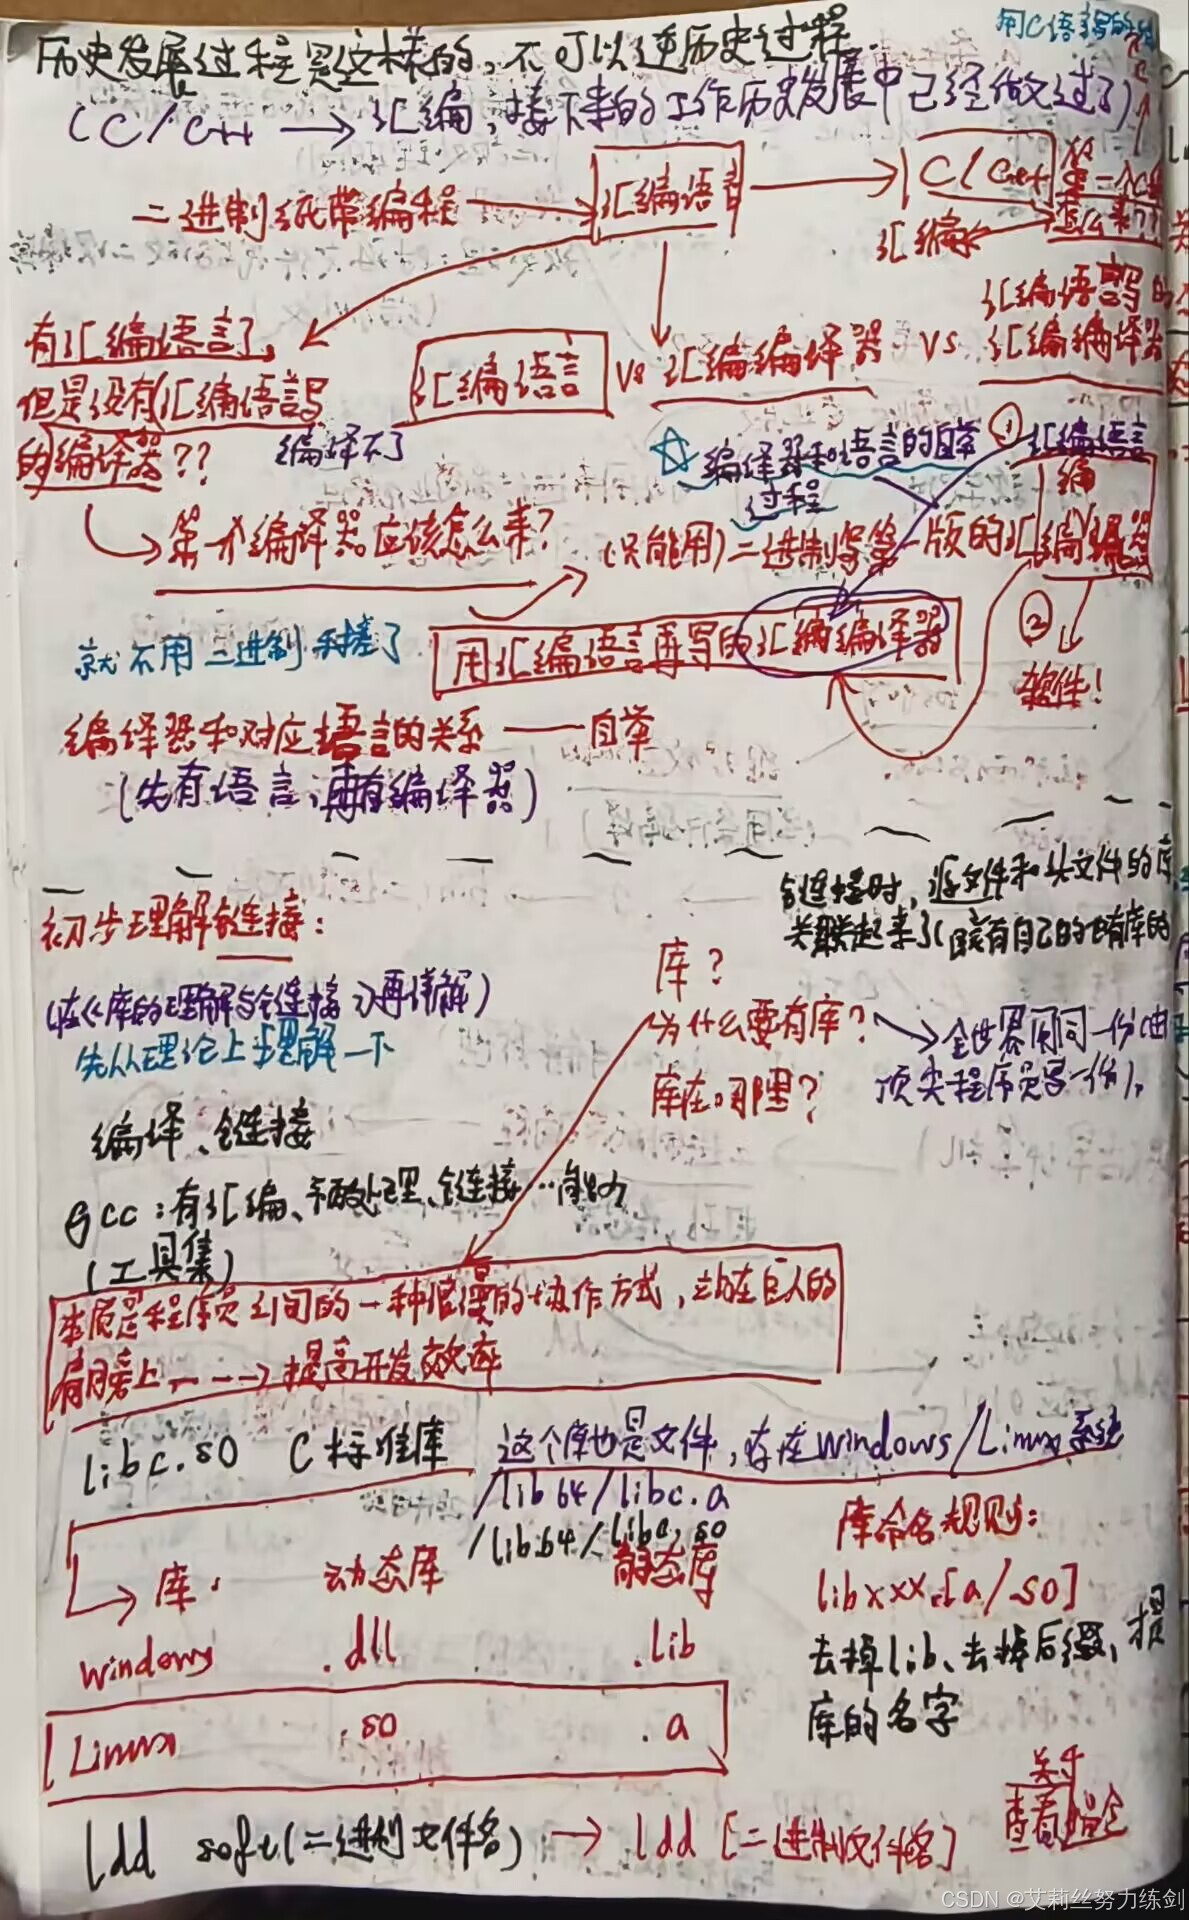 用C语言写的
历史发展过程是这样的,不可以逆历史过程.
(C/C++ → 汇编,接下来的工作历史发展中已经做过了)
二进制纸带编程 → 汇编语言 → C/C++
第一个
汇编 怎么来??
有汇编语言了,
但是没有汇编语言
的编译器??
编译不了
汇编语言 VS 汇编编译器 VS
汇编语言写的
汇编编译器
☆编译器和语言的自举
过程
① 汇编语言
第一个编译器应该怎么来?
(只能用)二进制写第一版的汇编编译器
② 软件!
就不用二进制
用汇编语言再写的汇编编译器
编译器和对应语言的关系——自举
(先有语言,再有编译器)
初步理解链接:
链接时,源文件和头文件的库
关联起来了
(在<<库的理解与链接>>再详解)
先从理论上理解一下
库?
为什么要有库?→全世界用同一份(由
顶尖程序员写一份)。
库在哪里?
编译、链接
gcc:有汇编、预处理、链接…能力
(工具集)
本质是程序员之间的一种 的协作方式,站在巨人的
肩膀上,---→提高开发效率
libc.so C标准库 这个库也是文件,存在Windows/Linux系统
/lib64/libc.a
/lib64/libc.so
库命名规则:
libxxx.[a/.so]
去掉lib、去掉后缀,
库的名字
→ 库. 动态库 静态库
windows .dll .lib
Linux .so .a
关于
查看
ldd soft(二进制文件名) → ldd [二进制文件名]
CSDN @艾莉丝努力练剑